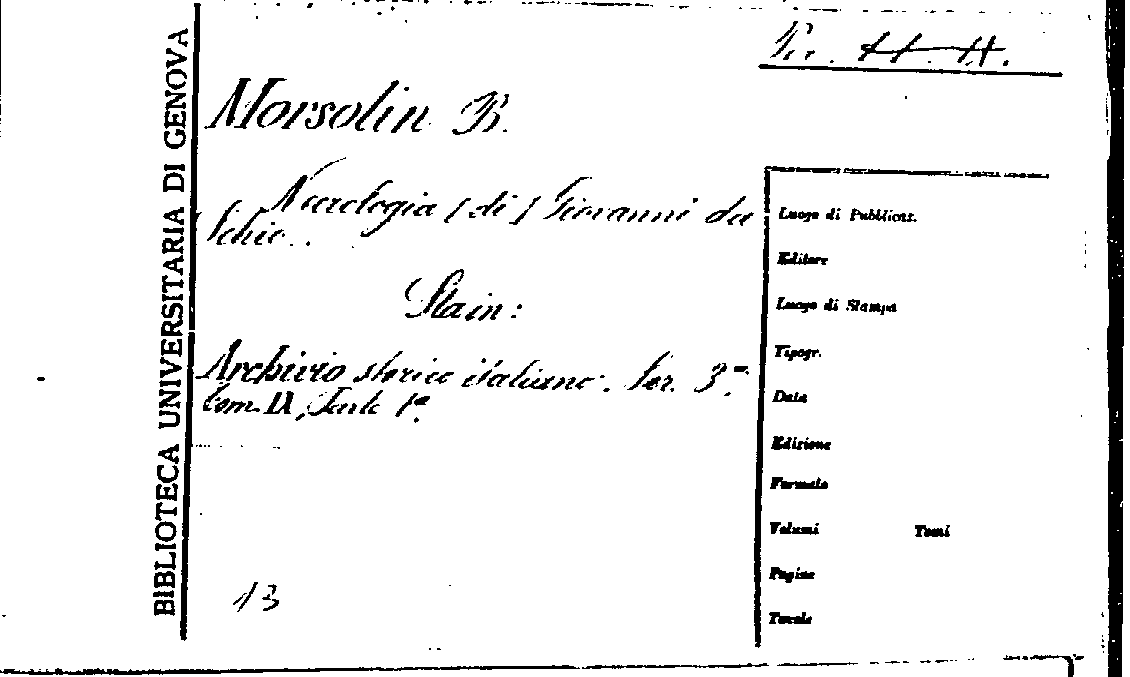 BIBLIOTECA UNIVERSITARIA DI GENOVA
Per. H. H.
Morsolin B.
Necrologia [di] Giovanni da
Schio.
Sta in:
Archivio storico italiano. Ser. 3ª
tom. IX, Parte 1ª.
13
Luogo di Pubblicaz.
Editore
Luogo di Stampa
Tipogr.
Data
Edizione
Formato
Volumi Tomi
Pagine
Tavole